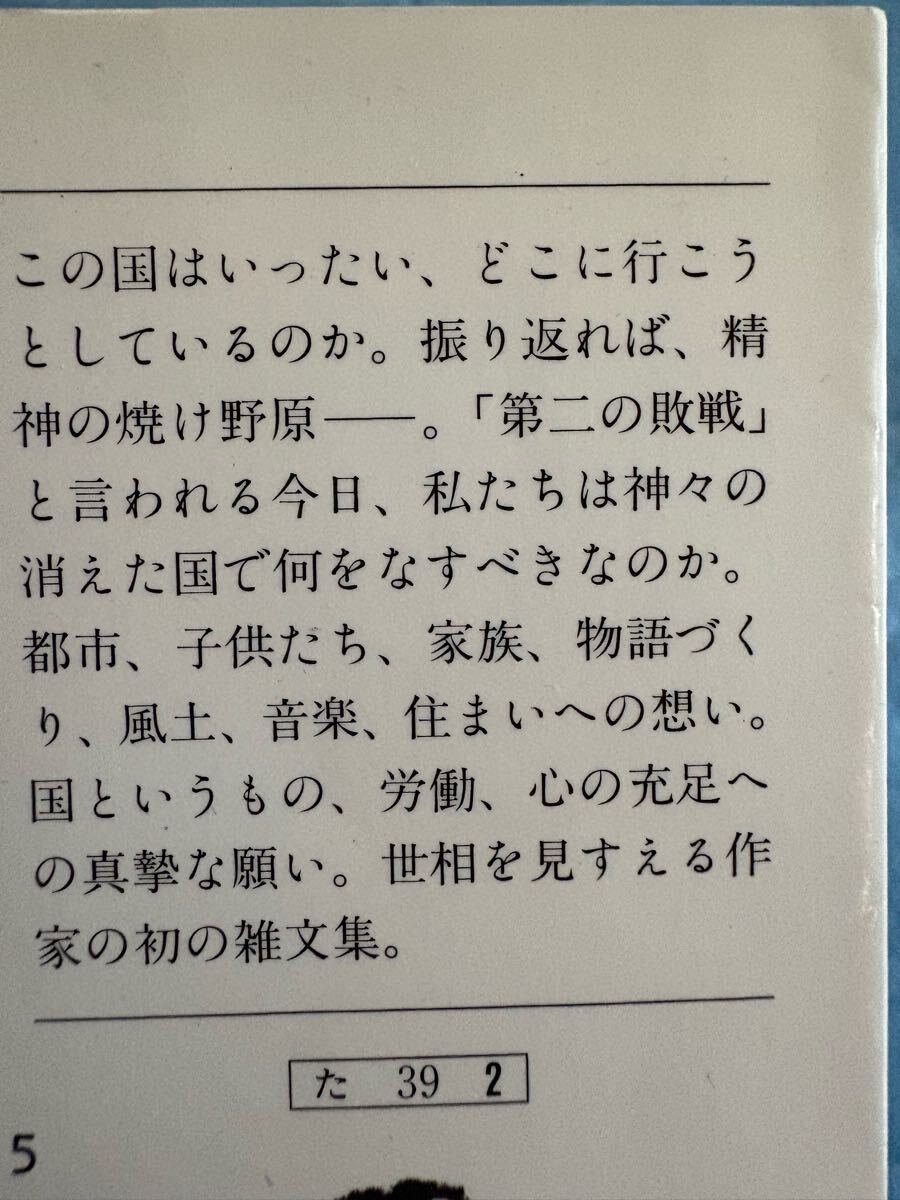 この国はいったい、どこに行こう
としているのか。振り返れば、精
神の焼け野原――。「第二の敗戦」
と言われる今日、私たちは神々の
消えた国で何をなすべきなのか。
都市、子供たち、家族、物語づく
り、風土、音楽、住まいへの想い。
国というもの、労働、心の充足へ
の真摯な願い。世相を見すえる作
家の初の雑文集。
た 39 2
5